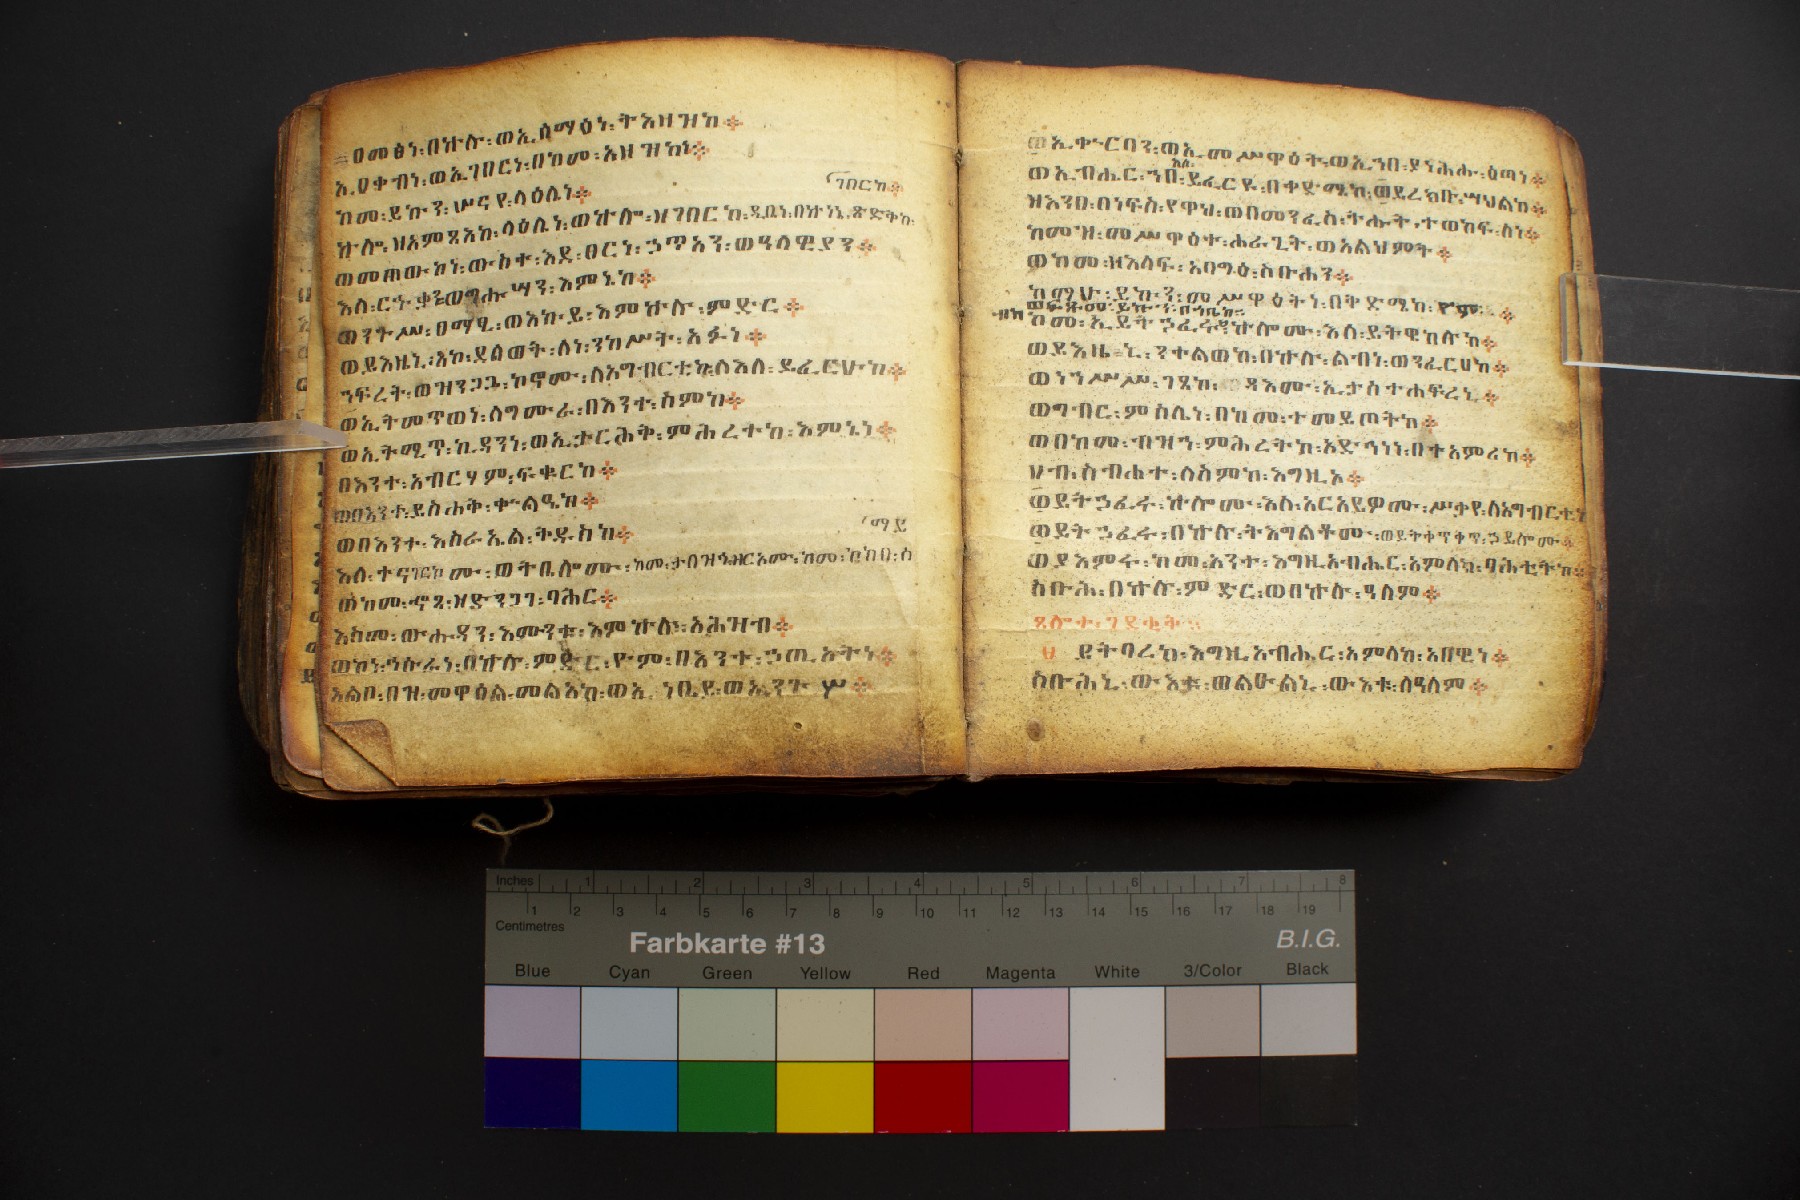 ዐመፅነ፡በኵሉ፡ወኢሰማዕነ፡ትእዛዝከ፨
ኢዐቀብነ፡ወኢገበርነ፡በከመ፡አዘዝከነ፨
ከመ፡ይኩን፡ሠናየ፡ላዕሌነ፨
ገበርከ፨
ኵሎ፡ዘአምጻእከ፡ላዕሌነ፡ወኵሎ፡ዘገበርከ፡ዲቤነ፡በኵነኔ፡ጽድቅከ
ወመጠውከነ፡ውስተ፡እደ፡ፀርነ፡ኃጥአን፡ወዓላዊያን፨
እለ፡ርኁቃን፡ወግሑሣን፡እምኔከ፨
ወንጉሥ፡ዐማፂ፡ወእኩይ፡እምኵሉ፡ምድር፨
ወይእዜኒ፡አኮ፡ደለወት፡ለነ፡ንክሥት፡አፉነ፨
ኀፍረት፡ወዝንጋጔ፡ኮኖሙ፡ለአግብርቲከ፡ለእለ፡ይፈርሁከ፨
ወኢትመጥወነ፡ለግሙራ፡በእንተ፡ስምከ፨
ወኢትሚጥ፡ኪዳንነ፡ወኢታርሕቅ፡ምሕረተከ፡እምኔነ፨
በእንተ፡አብርሃም፡ፍቁርከ፨
ወበእንተ፡ይስሐቅ፡ቍልዔከ፨
ወበእንተ፡እስራኤል፡ቅዱስከ፨
ማይ
እለ፡ተናገርኮሙ፡ወትቤሎሙ፡ከመ፡ታበዝኅ፡ዘርኦሙ፡ከመ፡ኮከበ፡ሰ
ወከመ፡ኆጻ፡ዘድንጋገ፡ባሕር፨
እስመ፡ውሑዳን፡እሙንቱ፡እምኵሉ፡አሕዛብ፨
ወከነ፡ኅሱራነ፡በኵሉ፡ምድር፡ዮም፡በእንተ፡ኃጢአትነ፨
አልቦ፡በዝ፡መዋዕል፡መልአከ፡ወኢ ነቢይ፡ወኢንጉሥ፨
ወኢቍርባን፡ወኢመሥዋዕት፡ወኢኀበ፡ያነሕሑ፡ዕጣነ፨
ወኢብሔር፡ኀበ፡ይፈርዩ፡በቅድሜከ፡ወይረክቡ፡ሣህልከ፨
ዝእንበ፡በነፍስ፡የዋህ፡ወበመንፈስ፡ትሑት፡ተወከፍ፡ስነ፨
ከመዝ፡መሥዋዕተ፡ሐራጊት፡ወአልህምት፨
ወከመ፡ዘእላፍ፡አባግዕ፡ስቡሐን፨
ከማሁ፡ይኩን፡መሥዋዕትነ፡በቅድሜከ፡ዮም፨
ከመ፡ኢይትኃፈሩ፡ኵሎሙ፡እለ፡ይትዌከሉከ፨
ወይእዜኒ፡ንተልወከ፡በኵሉ፡ልብነ፡ወንፈርሀከ፨
ወነኀሥሥ፡ገጸከ፡ዳእሙ፡ኢታስተሐፍረኒ፨
ወግብር፡ምስሌነ፡በከመ፡ተመይጦትከ፨
ወበከመ፡ብዝኀ፡ምሕረትከ፡አድኅነነ፡በተአምሪከ፨
ሀብ፡ስብሐተ፡ለስምከ፡እግዚኦ፨
ወይትኃፈሩ፡ኵሎሙ፡እለ፡አርአይዎሙ፡ሥቃየ፡ለአግብርቲከ
ወይትኃፈሩ፡በኵሉ፡ትእግልቶሙ፡ወይትቀጥቀጥ፡ኃይሎሙ፨
ወያእምሩ፡ከመ፡አንተ፡እግዚአብሔር፡አምላክ፡ባሕቲትከ፨
ስቡሕ፡በኵሉ፡ምድር፡ወበኵሉ፡ዓለም፨
ጸሎተ፡
፱ ይትባረክ፡እግዚአብሔር፡አምላከ፡አበዊነ፨
ስቡሕኒ፡ውእቱ፡ወልዑልኒ፡ውእቱ፡ለዓለም፨
Inches 1 2 3 4 5 6 7 8
1 2 3 4 5 6 7 8 9 10 11 12 13 14 15 16 17 18 19
Centimetres
Farbkarte #13 B.I.G.
Blue Cyan Green Yellow Red Magenta White 3/Color Black